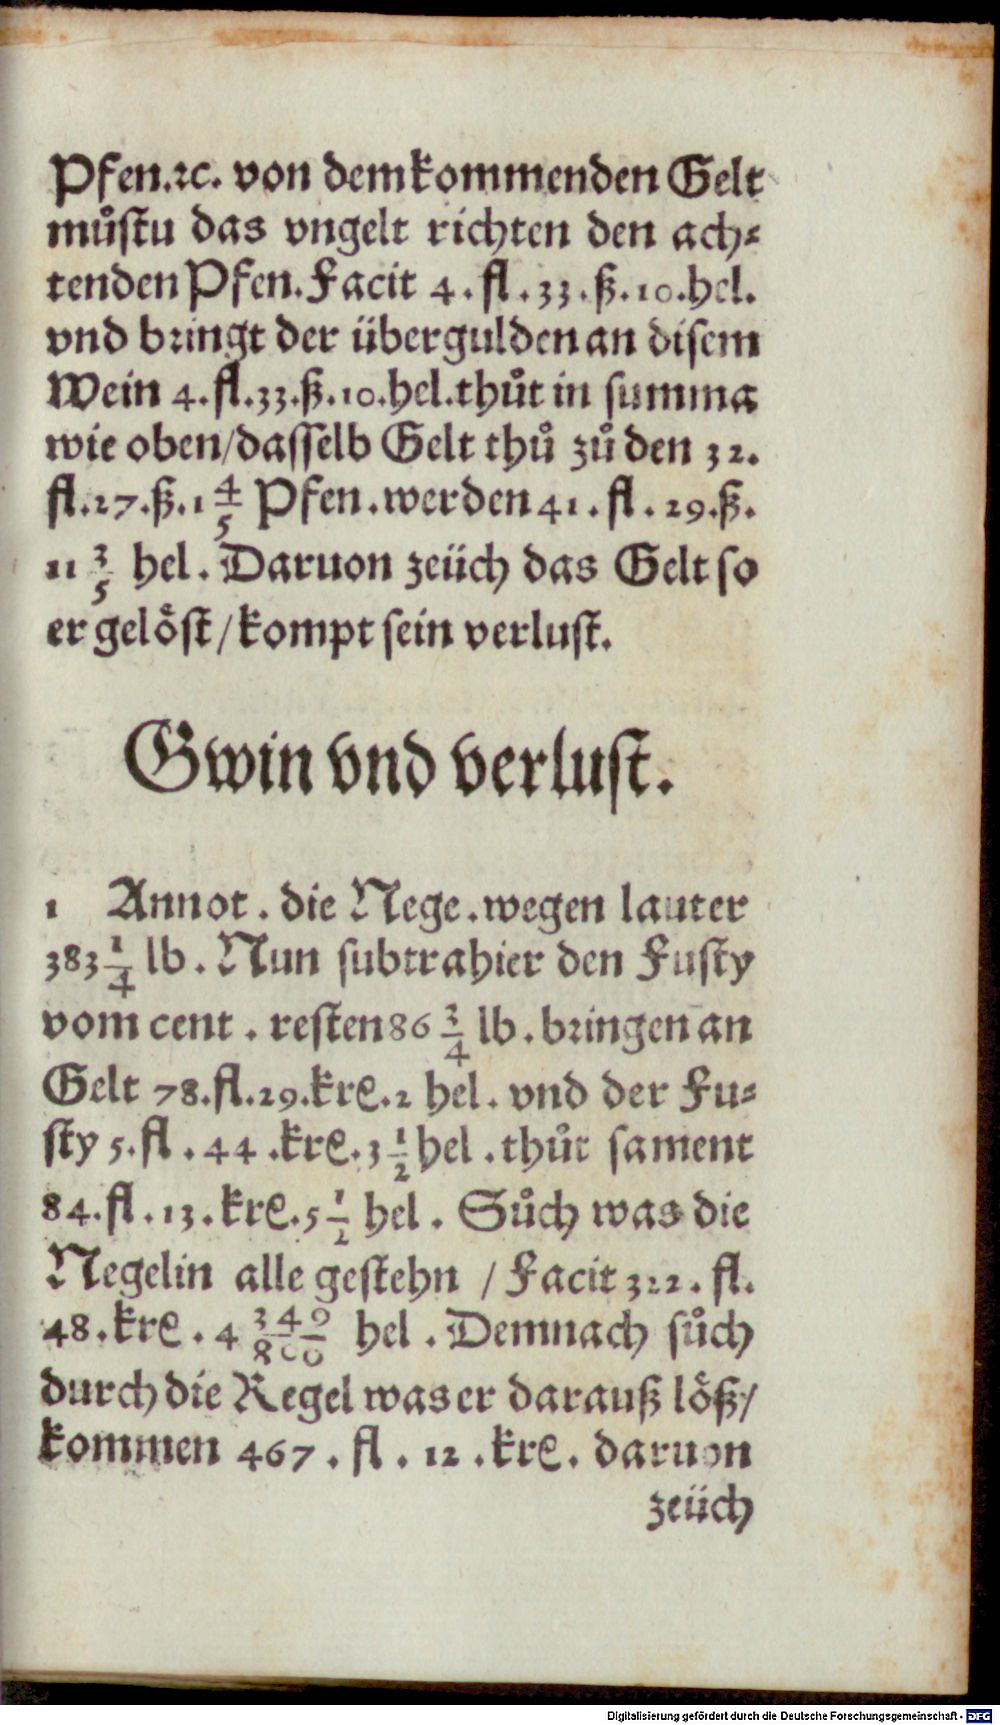 Pfen.ꝛc. von dem kommenden Gelt
muͤstu das vngelt richten den ach⸗
tenden Pfen. Facit 4. fl. 33. ß. 10. hel.
vnd bringt der übergulden an disem
Wein 4. fl. 33. ß. 10. hel. thuͦt in summa
wie oben/dasselb Gelt thuͦ zuͦ den 32.
fl. 27. ß. 1 4/5 Pfen. werden 41. fl. 29. ß.
11 3/5 hel. Daruon zeüch das Gelt so
er geloͤst/kompt sein verlust.
Gwin vnd verlust.
1 Annot. die Nege. wegen lauter
383 1/4 lb. Nun subtrahier den Fusty
vom cent. resten 86 3/4 lb. bringen an
Gelt 78. fl. 29. kre. 2 hel. vnd der Fu⸗
sty 5. fl. 44. kre. 3 1/2 hel. thuͦt sament
84. fl. 13. kre. 5 1/2 hel. Suͦch was die
Negelin alle gestehn / Facit 322. fl.
48. kre. 4 349/800 hel. Demnach suͦch
durch die Regel was er darauß loͤß/
kommen 467. fl. 12. kre. daruon
zeüch
Digitalisierung gefördert durch die Deutsche Forschungsgemeinschaft - DFG